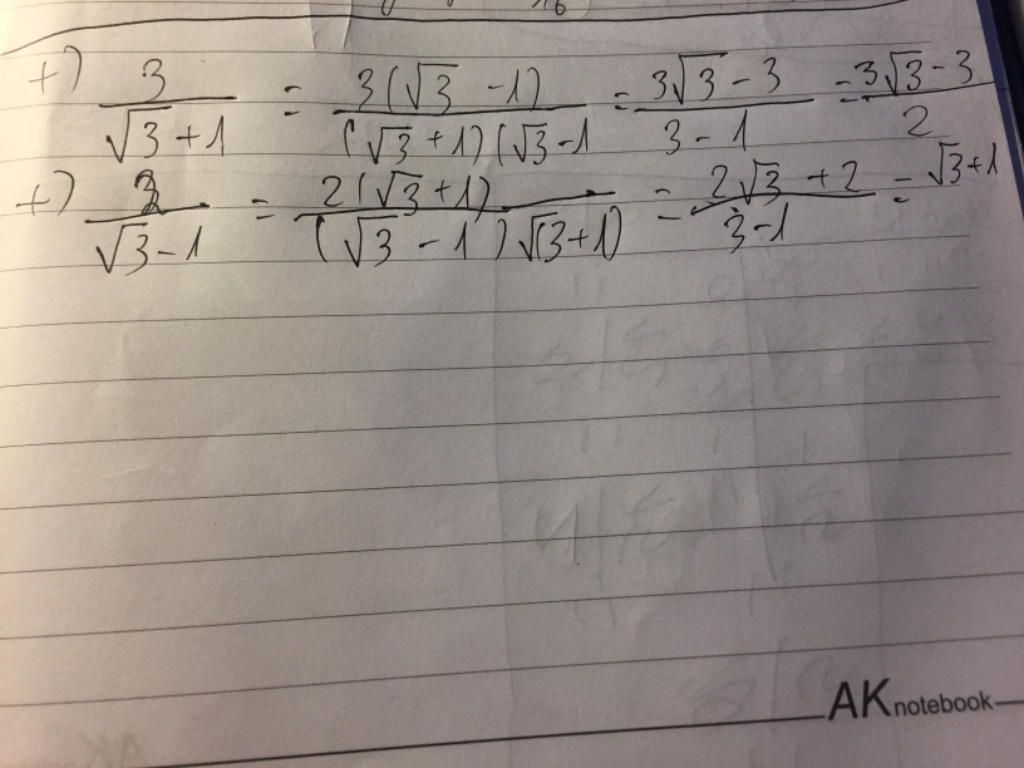 16
+) 3/(√3 + 1) = 3(√3 - 1)/((√3 + 1)(√3 - 1 = (3√3 - 3)/(3 - 1) = (3√3 - 3)/2
+) 2/(√3 - 1) = 2(√3 + 1)/((√3 - 1)√(3 + 1) = (2√3 + 2)/(3 - 1) = √3 + 1
AK notebook